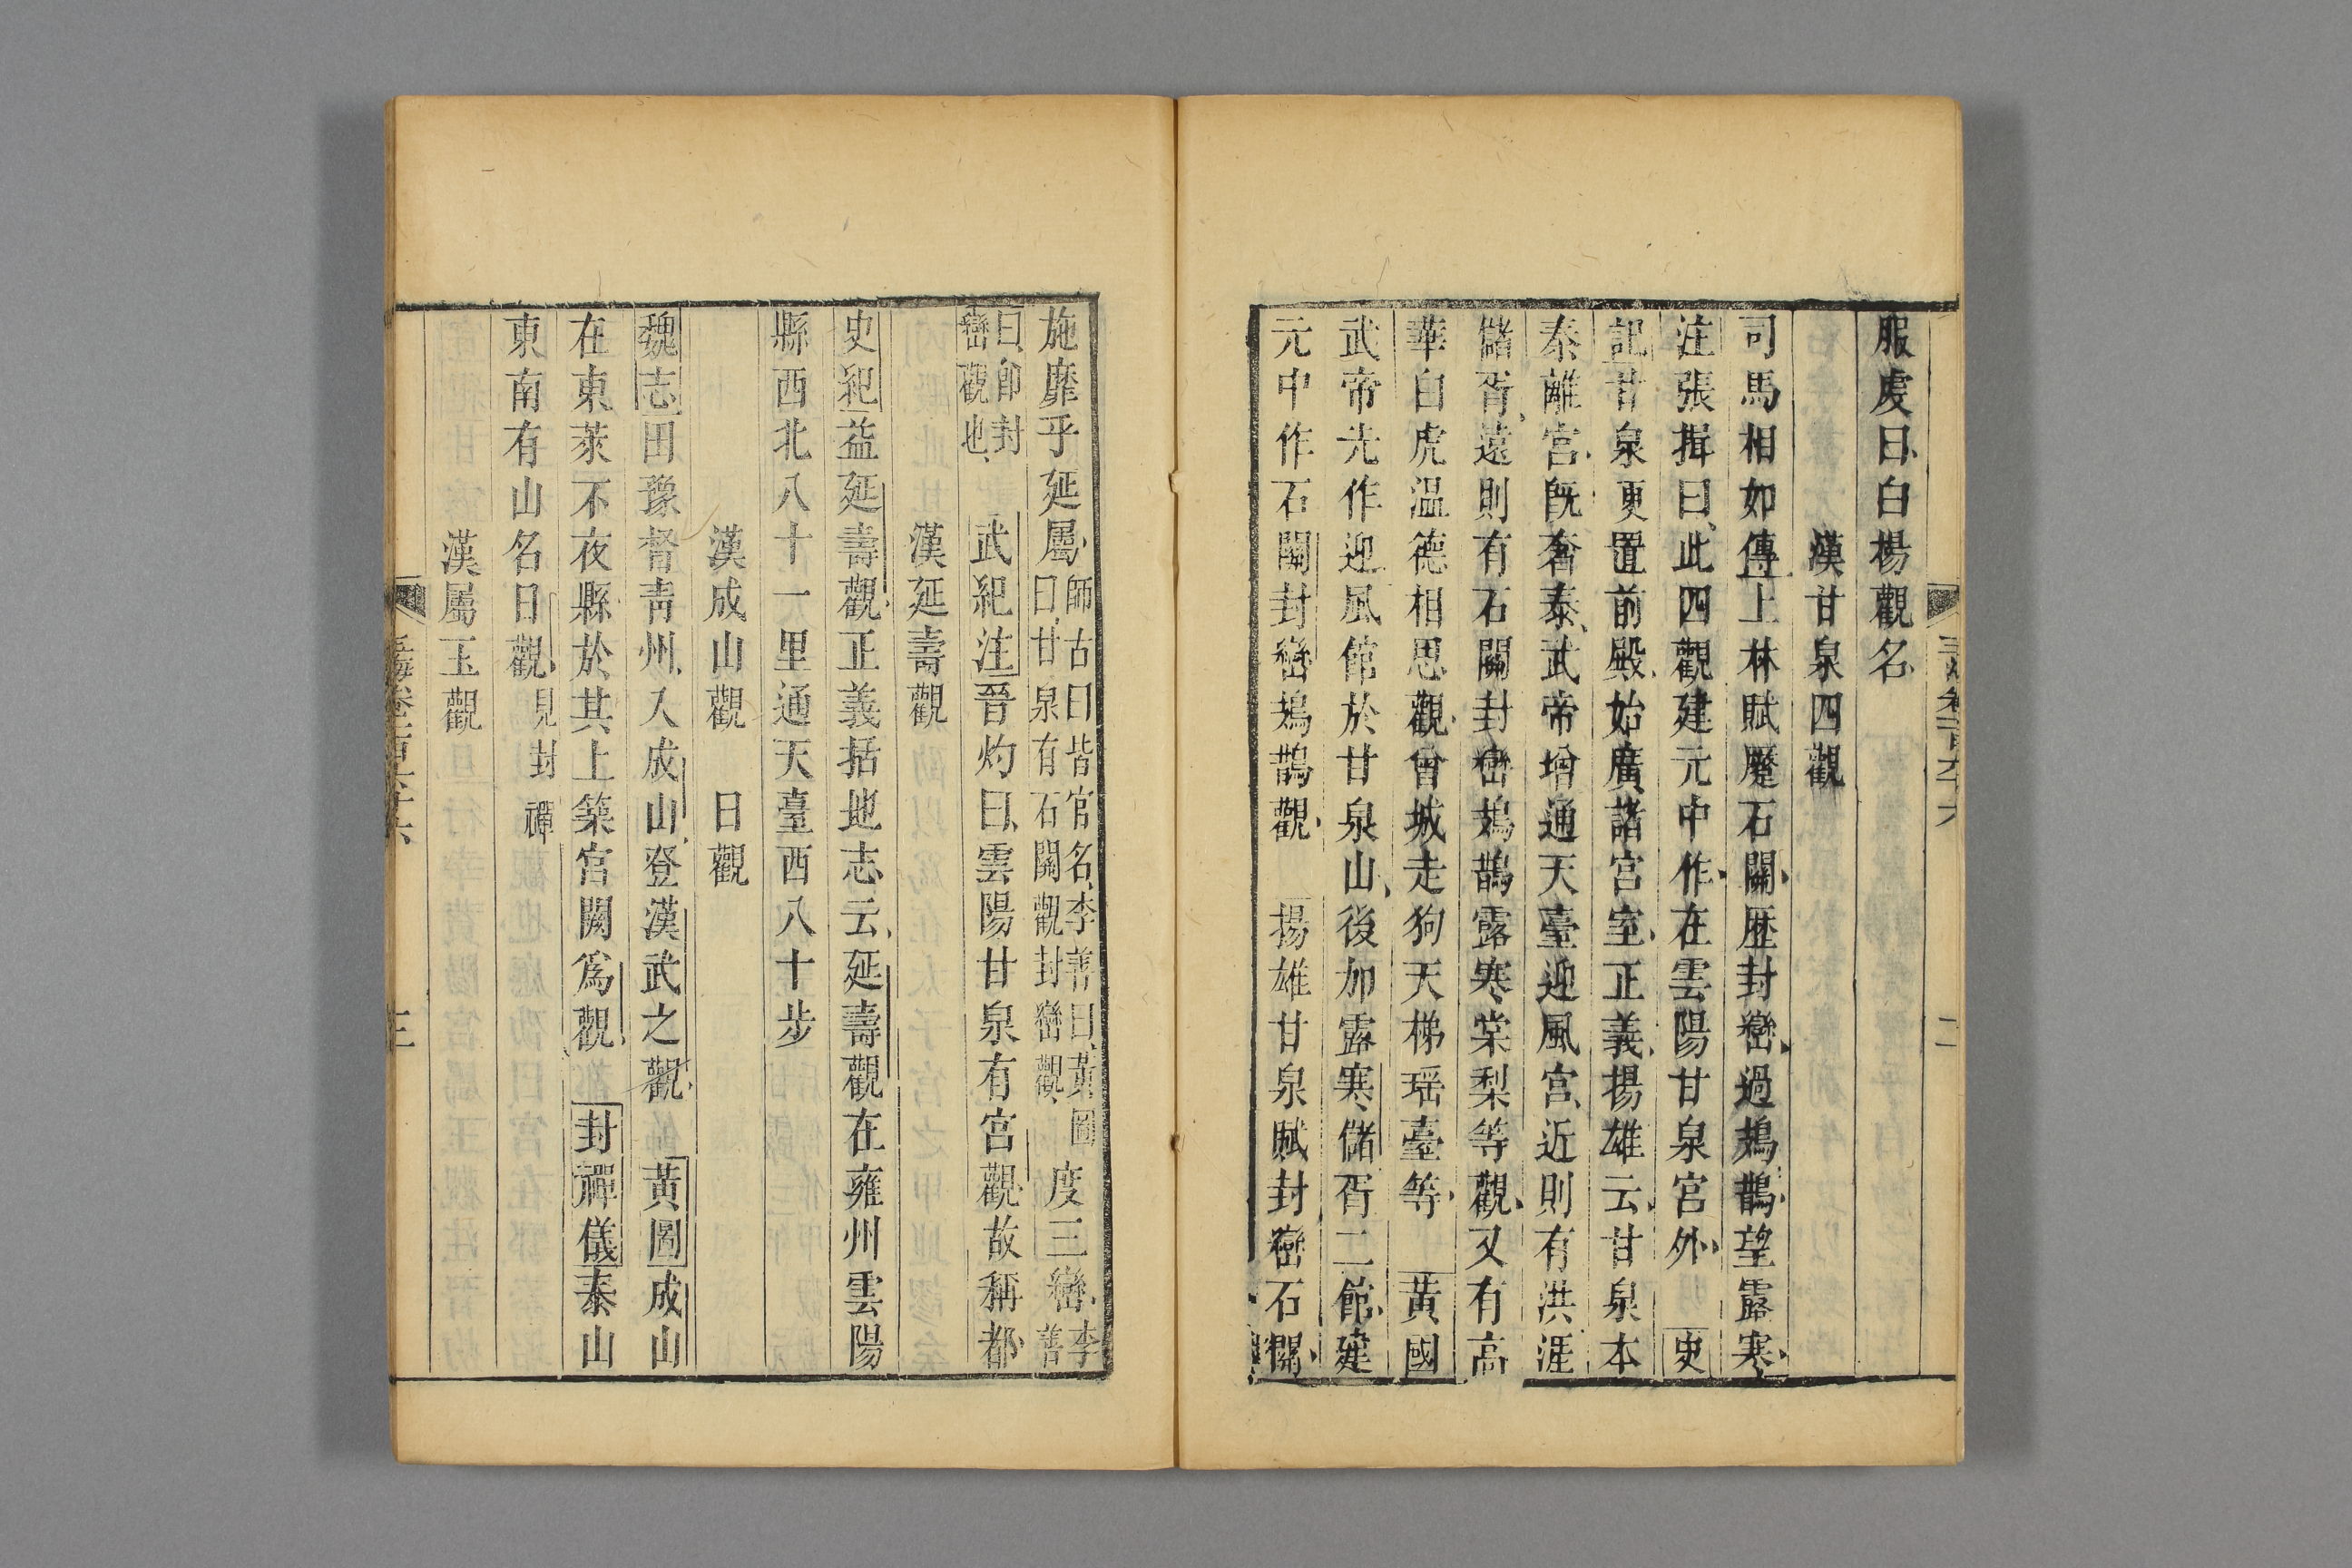 服虔曰白楊觀名
漢甘泉四觀
司馬相如傳上林賦蹷石關歷封巒過鳷鵲望露寒
注張揖曰此四觀建元中作在雲陽甘泉宮外 史
記甘泉更置前殿始廣諸宮室正義揚雄云甘泉本
泰離宮旣奢泰武帝增通天臺迎風宮近則有洪涯
儲胥遠則有石關封巒鳷鵲露寒棠梨等觀又有高
華白虎溫德相思觀曾城走狗天梯瑶臺等 黃國
武帝先作迎風館於甘泉山後加露寒儲胥二館建
元中作石關封巒鳷鵲觀 揚雄甘泉賦封巒石關
施靡乎延屬師古曰皆官名李善曰黃圖曰甘泉有石關觀封巒觀度三巒李善
曰卽封巒觀也 武紀注晉灼曰雲陽甘泉有宮觀故稱都
漢延壽觀
史紀益延壽觀正義括地志云延壽觀在雍州雲陽
縣西北八十一里通天臺西八十步
漢成山觀 日觀
魏志田豫督靑州入成山登漢武之觀 黃圖成山
在東萊不夜縣於其上築宮闕爲觀 封禪儀泰山
東南有山名日觀見封禪
漢屬玉觀
玉海卷一百六十六 三